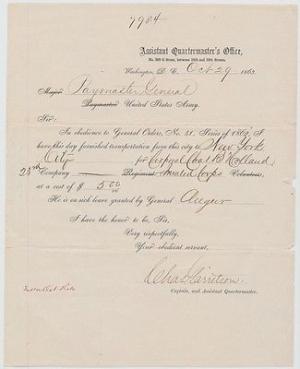 7904
Assistant Quartermaster's Office,
Washington, D. C., Oct 29 186
Major Paymaster General
Paymaster United States Army.
Sir:
In obedience to General Orders, No. 31, Series of 1862, I
have this day furnished transportation from this city to New York
City for Corporal Chas B Holland
28th Company Regiment Invalid Corps Volunteers,
at a cost of $ 5.00
He is on sick leave granted by General Augur
I have the honor to be, Sir,
Very respectfully,
Your obedient servant,
Chas Garretson
Captain, and Assistant Quartermaster.